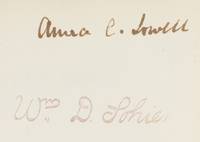 Anna C. Lowell
Wm D. Sohier